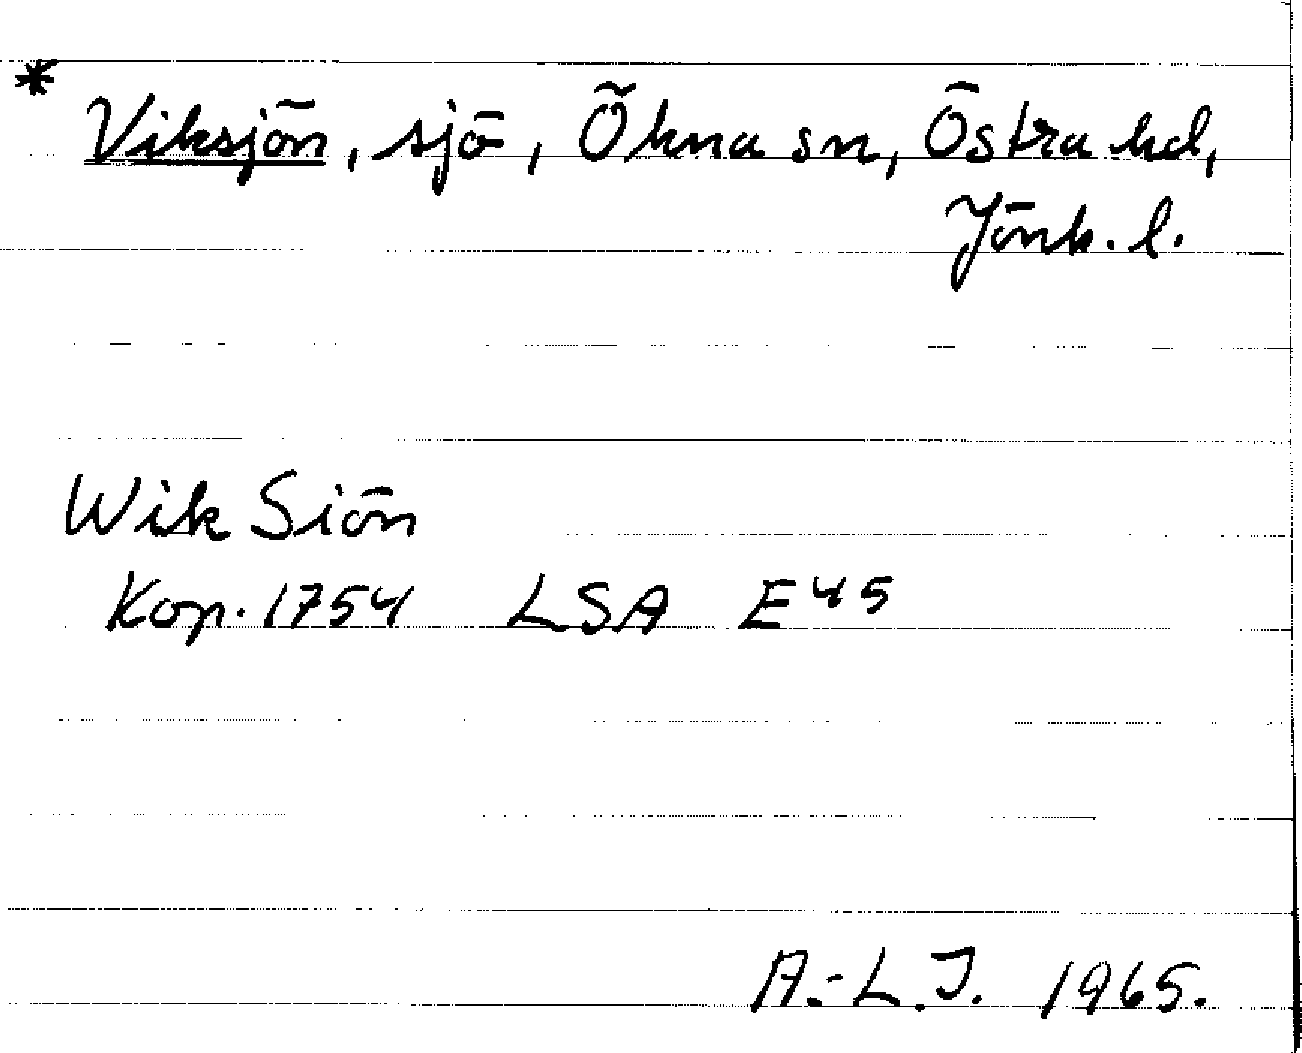 * Viksjön, sjö, Ökna sn, Östra hd,
Jönk. l.
Wik Siön
Kop. 1754 LSA E45
A.-L.J. 1965.